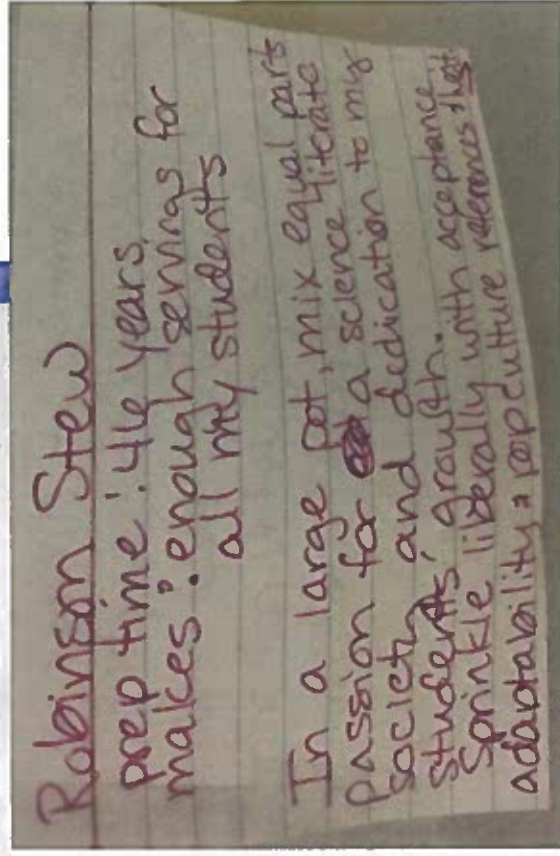 Robinson Stew
prep time: 46 years
makes: enough servings for
all my students
In a large pot, mix equal parts
passion for a science literate
society and dedication to my
students' growth.
Sprinkle liberally with acceptance,
adaptability & pop culture references that